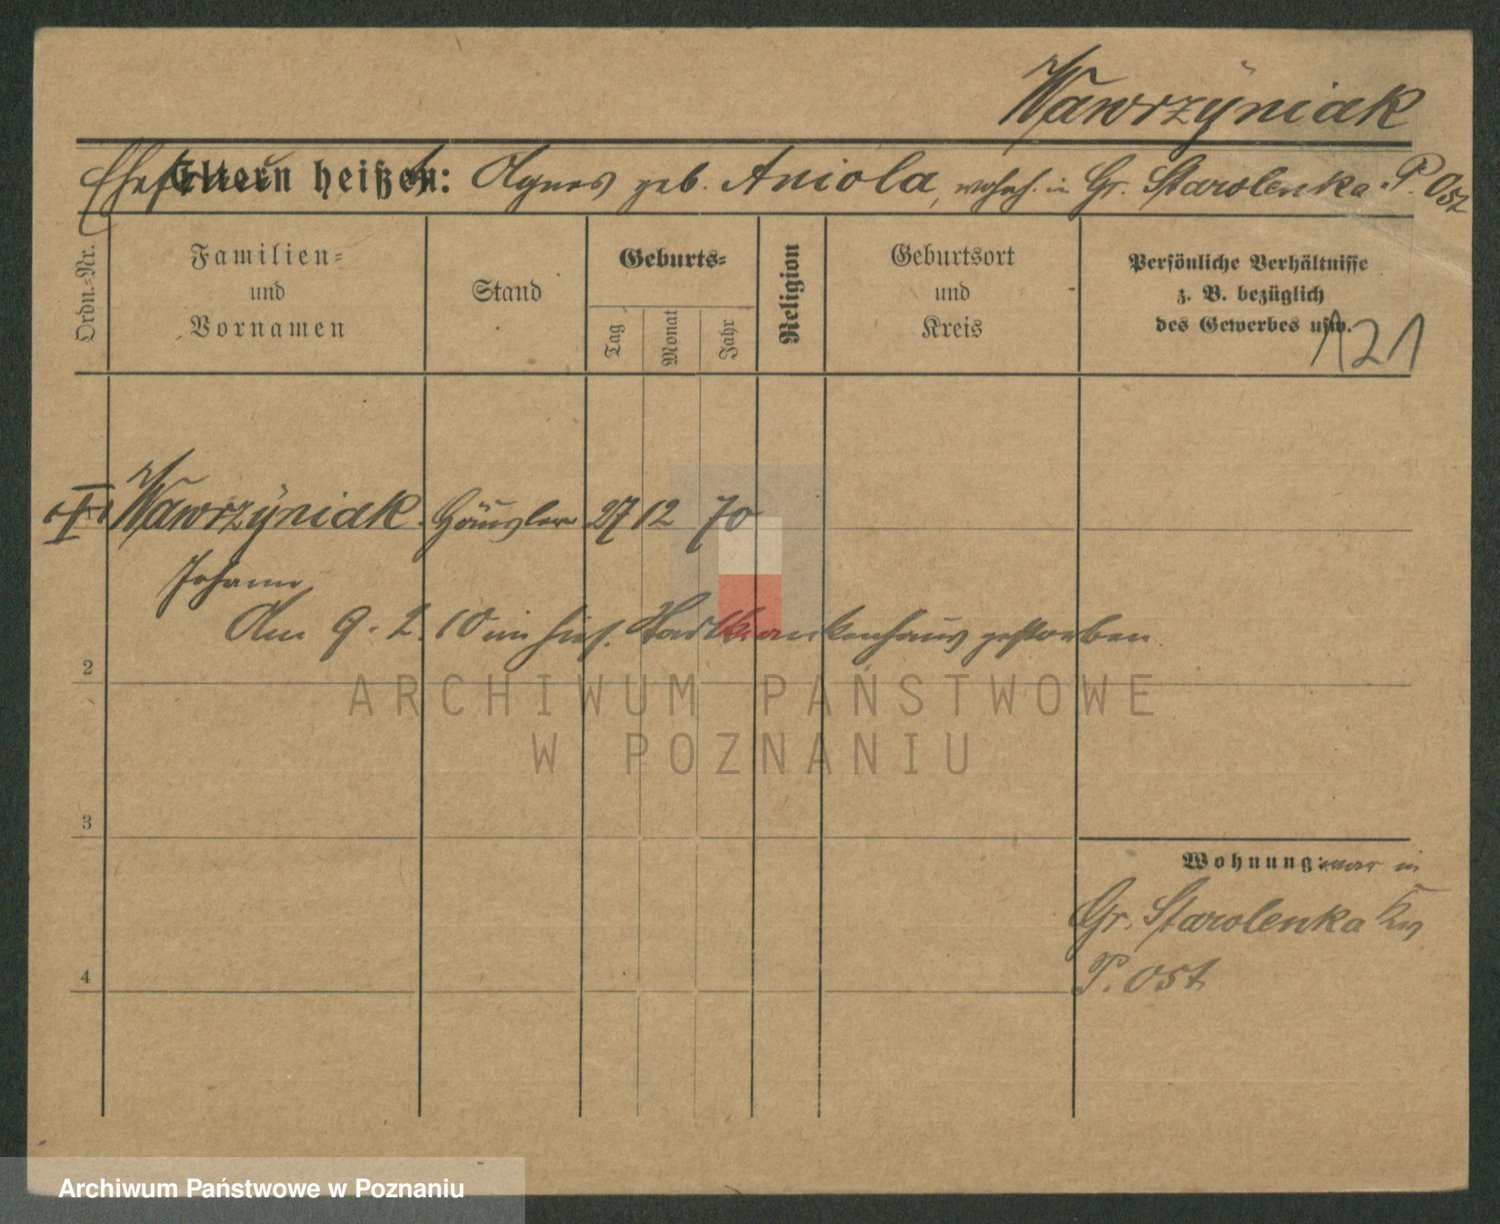 Wawrzÿniak
Ehefrau
Eltern heißen: Agnes geb. Aniola, wohnh. in Gr. Starolenka. P. Ost
Ordn.-Nr.
Familien- und Vornamen
Stand
Geburts-
Tag
Monat
Jahr
Religion
Geburtsort und Kreis
Persönliche Verhältnisse
z. B. bezüglich
des Gewerbes usw.
121
I Wawrzÿniak Häusler 27 12 70
Johann
Am 9. 2. 10 im hies. Stadtkrankenhaus gestorben.
2
ARCHIWUM PAŃSTWOWE
W POZNANIU
3
Wohnung: war in
Gr. Starolenka
P. Ost
4
Archiwum Państwowe w Poznaniu